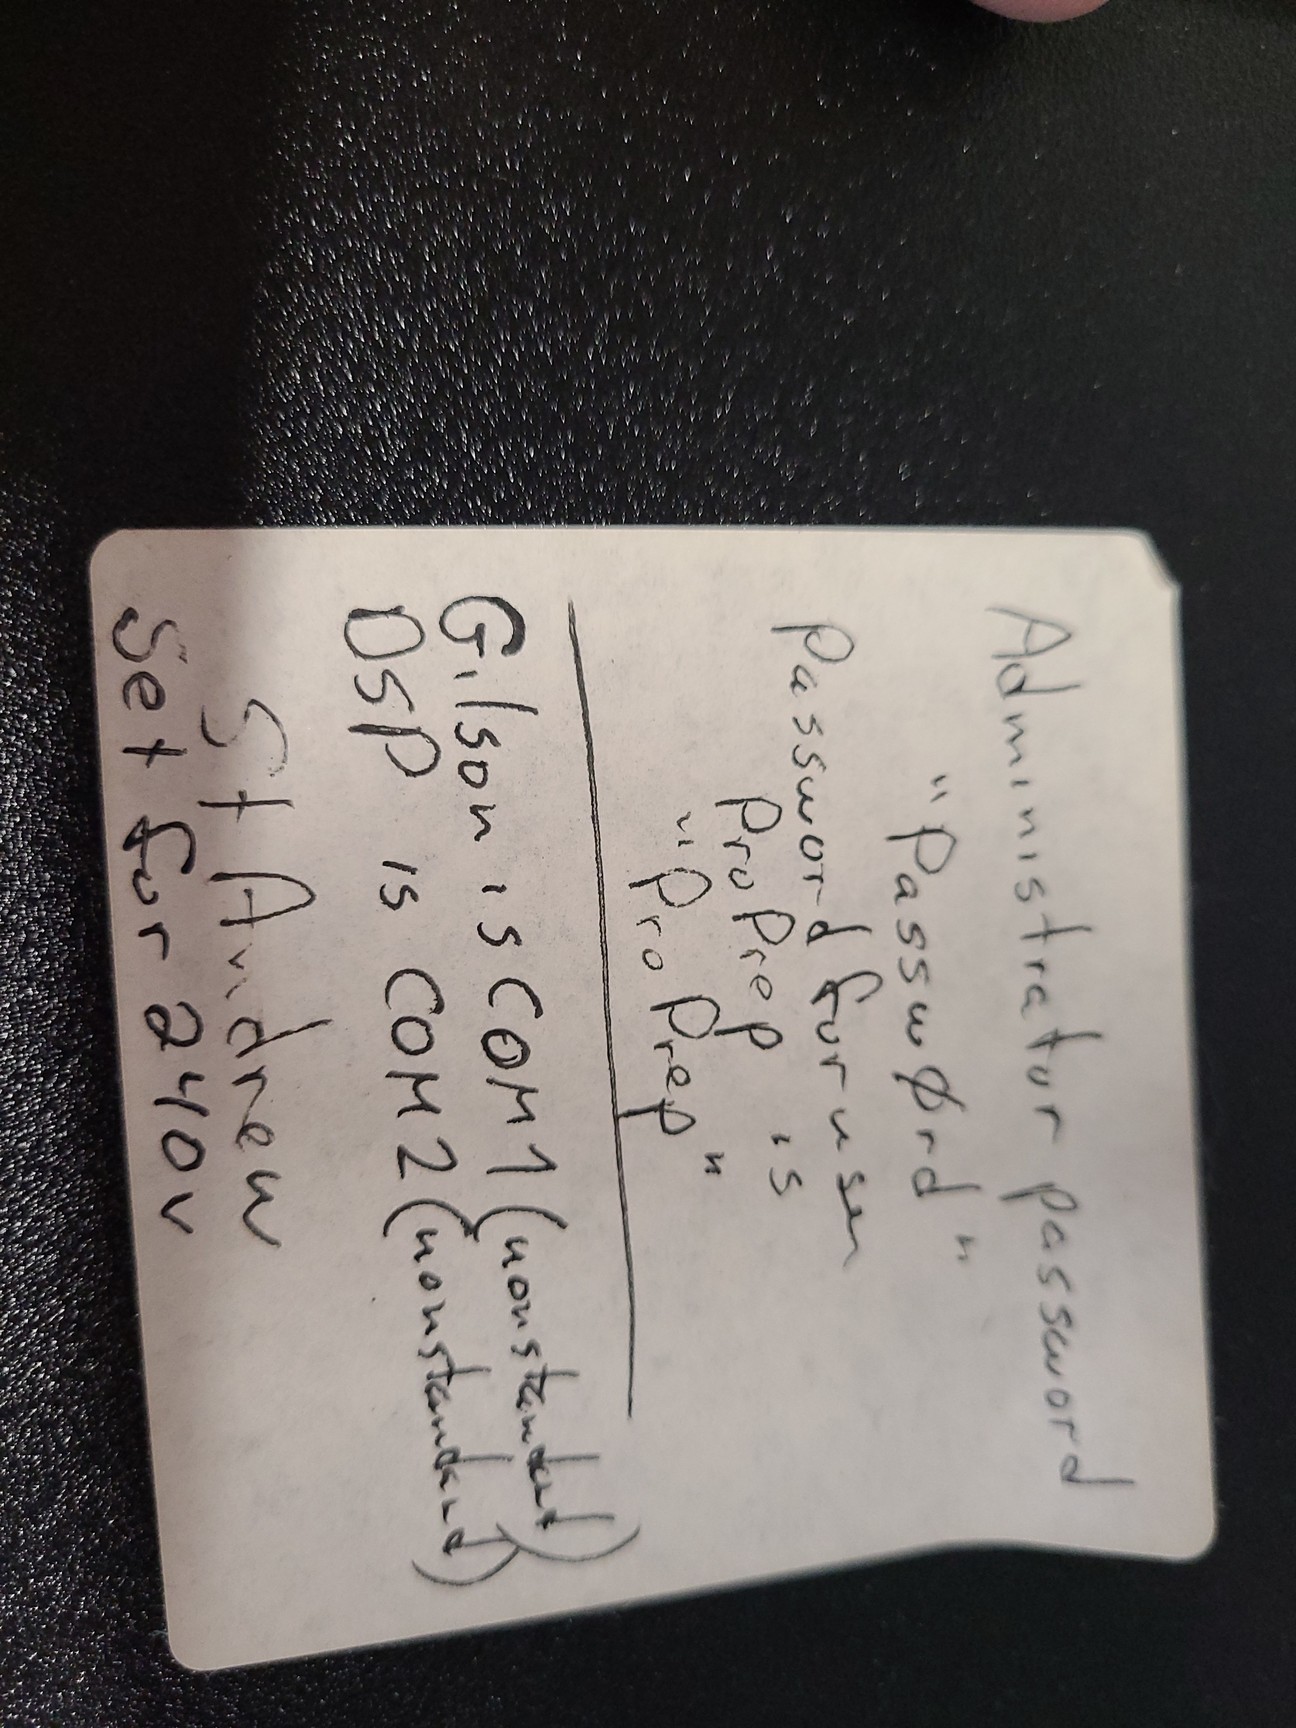 Administrator password
"Passwørd"
Password for user
ProPrep is
"ProPrep"
Gilson is COM1 (nonstandard)
DSP is COM2 (nonstandard)
St Andrew
Set for 240V